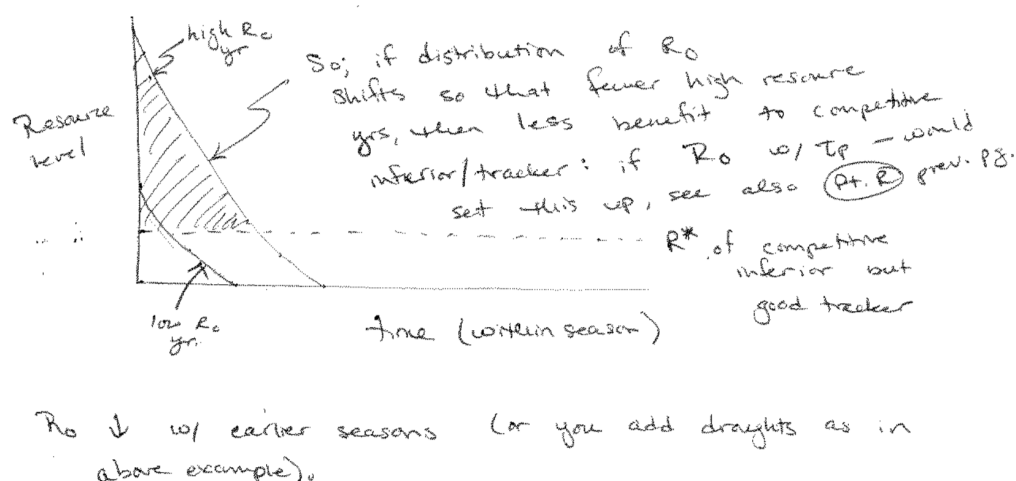 high R₀
yr
Resource
level
So; if distribution of R₀
shifts so that fewer high resource
yrs, then less benefit to competitive
inferior/tracker: if R₀ w/ τp – would
set this up, see also pt. R prev. pg.
R* of competitive
inferior but
good tracker
low R₀
yr.
time (within season)
R₀ ↓ w/ earlier seasons (or you add draughts as in
above example).